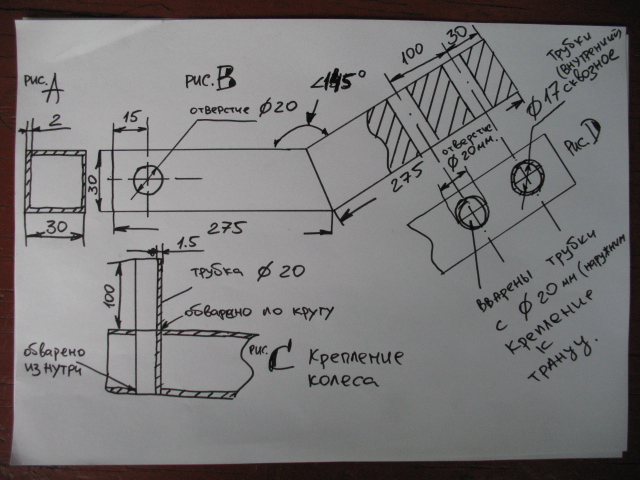 рис. А
2
30
30
рис. В
15
отверстие Ф20
<145°
275
275
100
30
трубки
(внутренний)
сквозное
Ф17
отверстие
Ф20мм.
Рис. D
вварены трубки
с Ф20мм (наружний
крепление
к
транцу.
1.5
100
трубка Ф20
обварено по кругу
обварено
из нутри
рис. С крепление
колеса